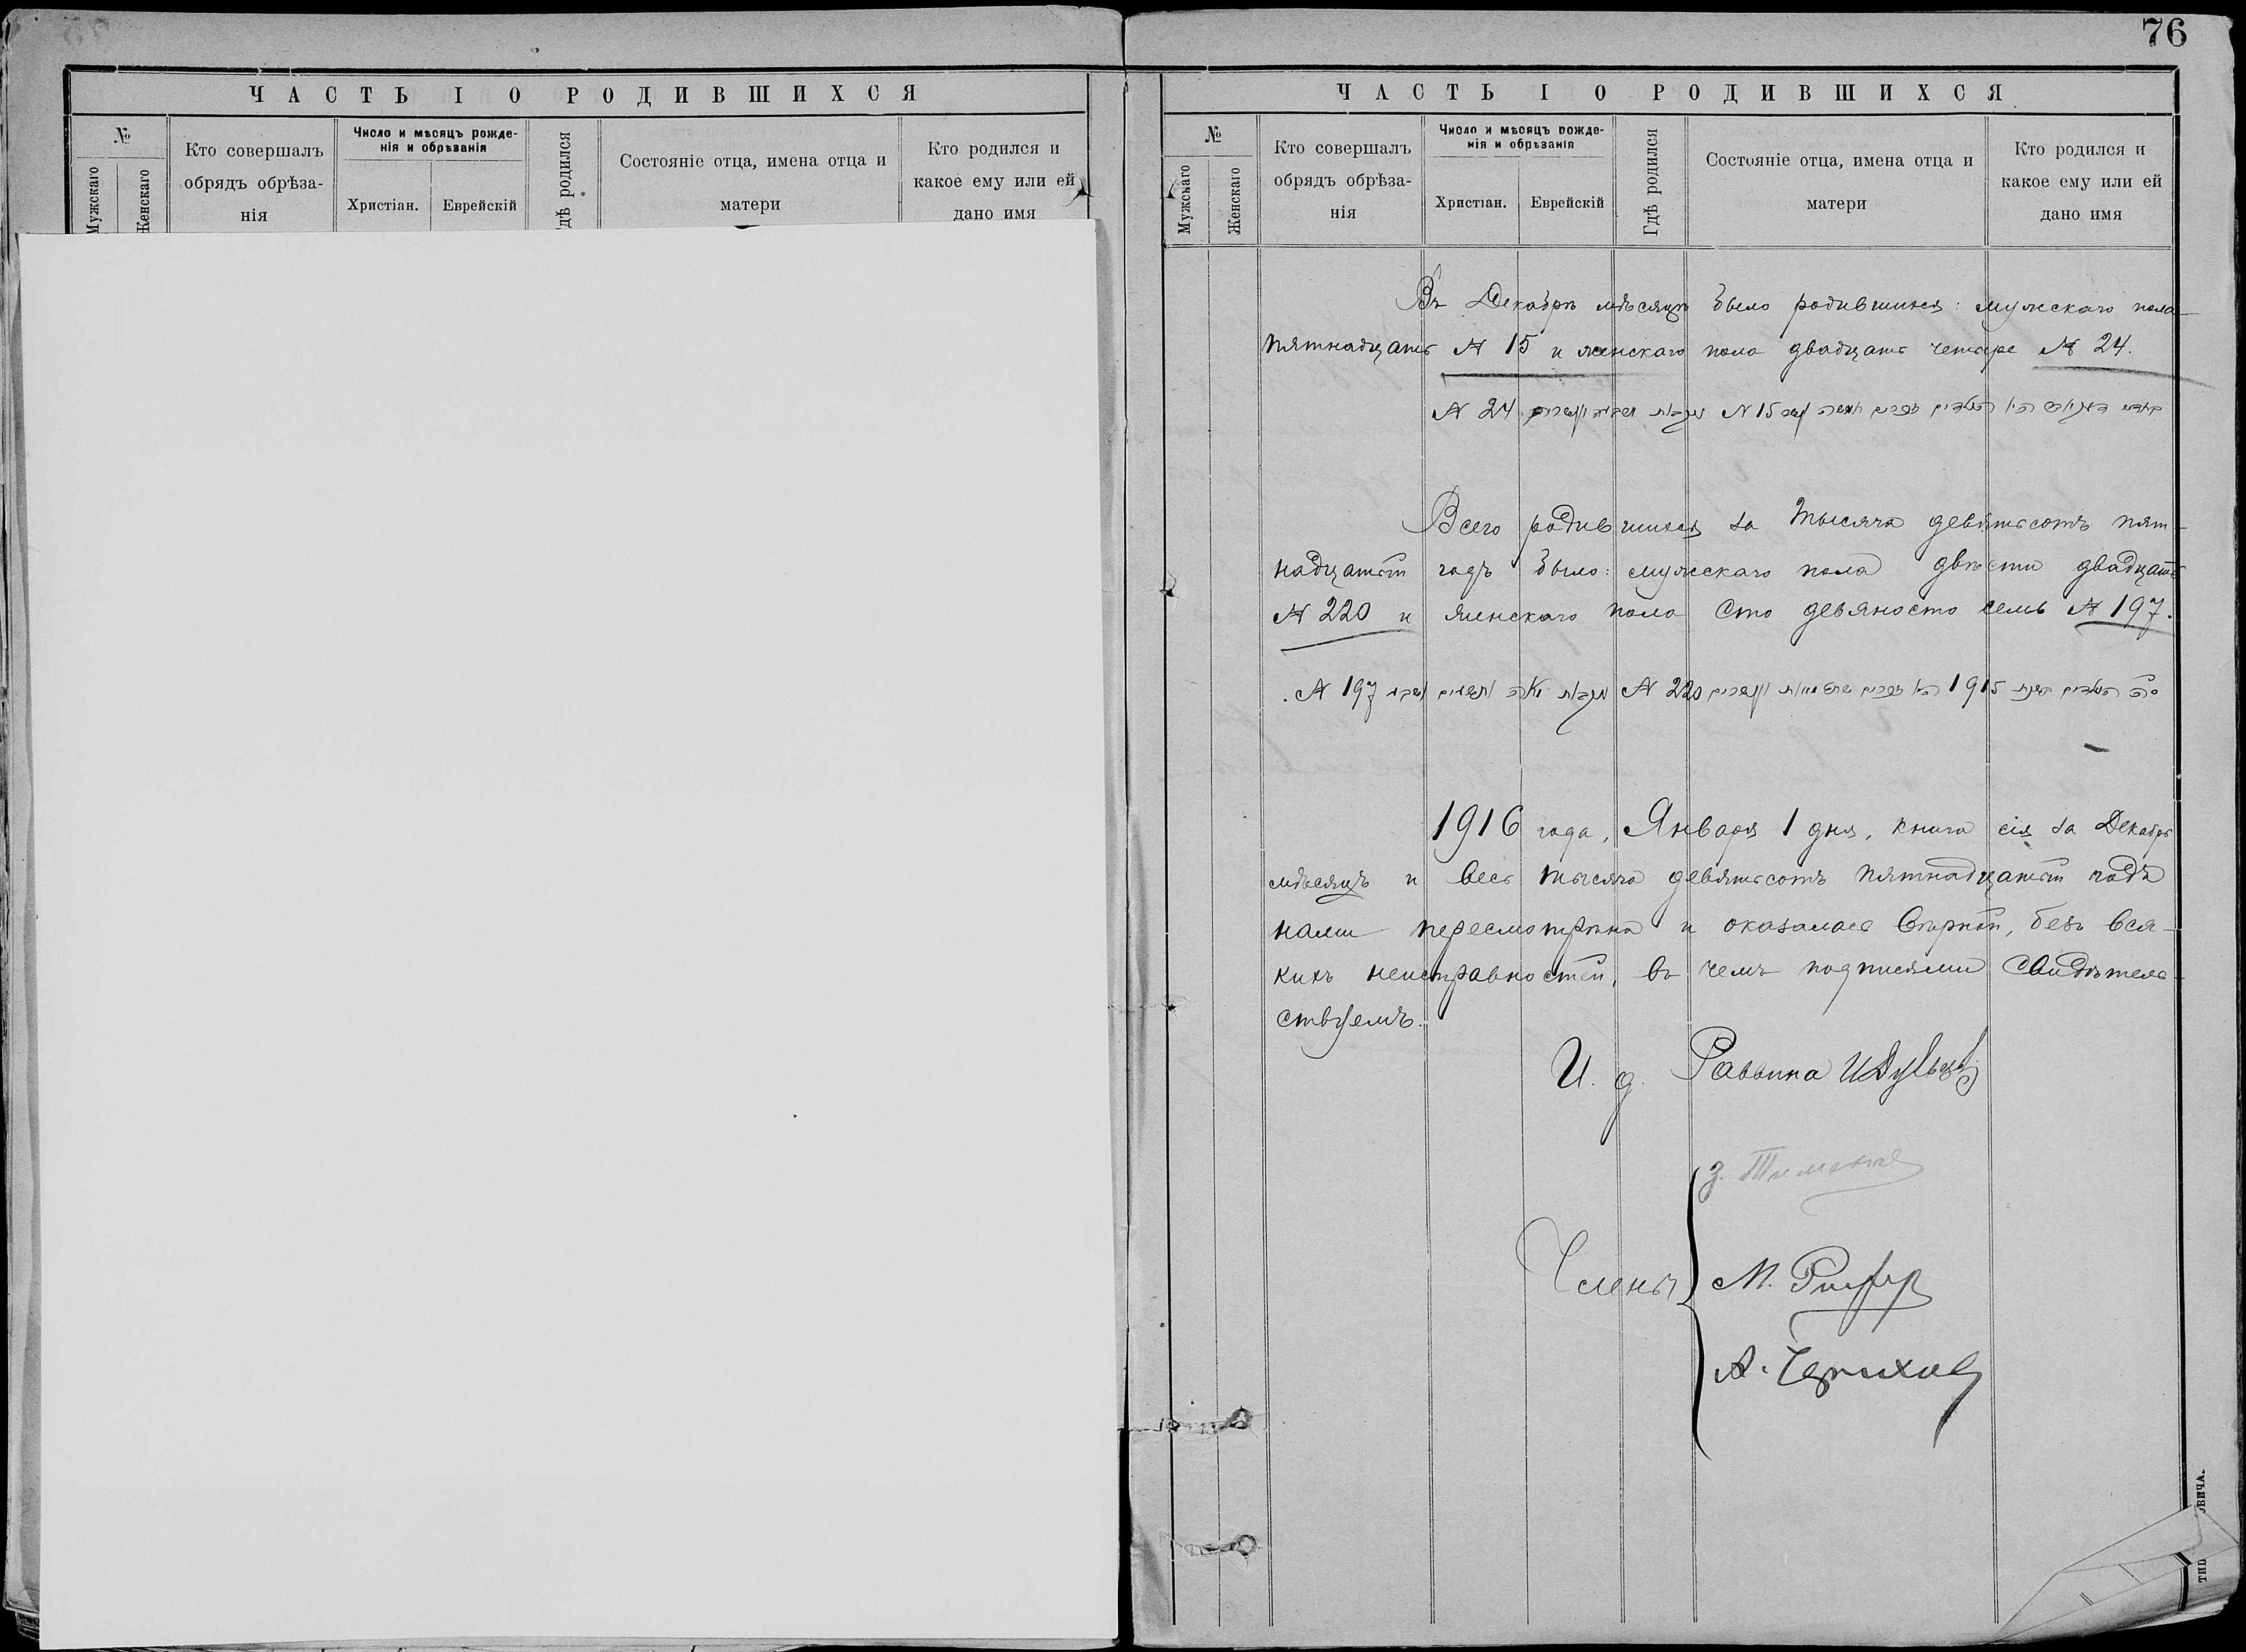 ЧАСТЬ I О РОДИВШИХСЯ
№
Мужскаго
Женскаго
Кто совершалъ
обрядъ обрѣза-
нія
Число и мѣсяцъ рожде-
нія и обрѣзанія
Христіан.
Еврейскій
Гдѣ родился
Состояніе отца, имена отца и
матери
Кто родился и
какое ему или ей
дано имя
76
ЧАСТЬ I О РОДИВШИХСЯ
№
Мужскаго
Женскаго
Кто совершалъ
обрядъ обрѣза-
нія
Число и мѣсяцъ рожде-
нія и обрѣзанія
Христіан.
Еврейскій
Гдѣ родился
Состояніе отца, имена отца и
матери
Кто родился и
какое ему или ей
дано имя
Въ Декабрѣ мѣсяцѣ было родившихся: мужскаго пола
пятнадцать № 15 и женскаго пола двадцать четыре № 24.
זכרים חמשה עשר № 15 נקבות № 24
Всего родившихся за тысяча девятьсотъ пят-
надцатый годъ было: мужскаго пола двѣсти двадцать
№ 220 и женскаго пола сто девяносто семь № 197.
1915 זכרים № 220 נקבות № 197.
1916 года, Января 1 дня, книга сія за Декабрь
мѣсяцъ и весь тысяча девятьсотъ пятнадцатый годъ
нами пересмотрѣна и оказалась вѣрной, безъ вся-
кихъ неисправностей, въ чемъ подписями свидѣтель-
ствуемъ.
И. д. Раввина
Члены
З.
М.
А.